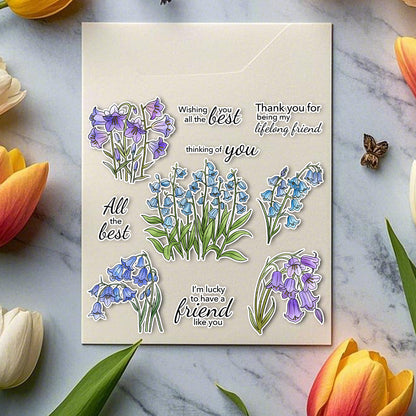 Wishing you
all the best
Thank you for
being my
lifelong friend
thinking of you
All
the
best
I'm lucky
to have a
friend
like you